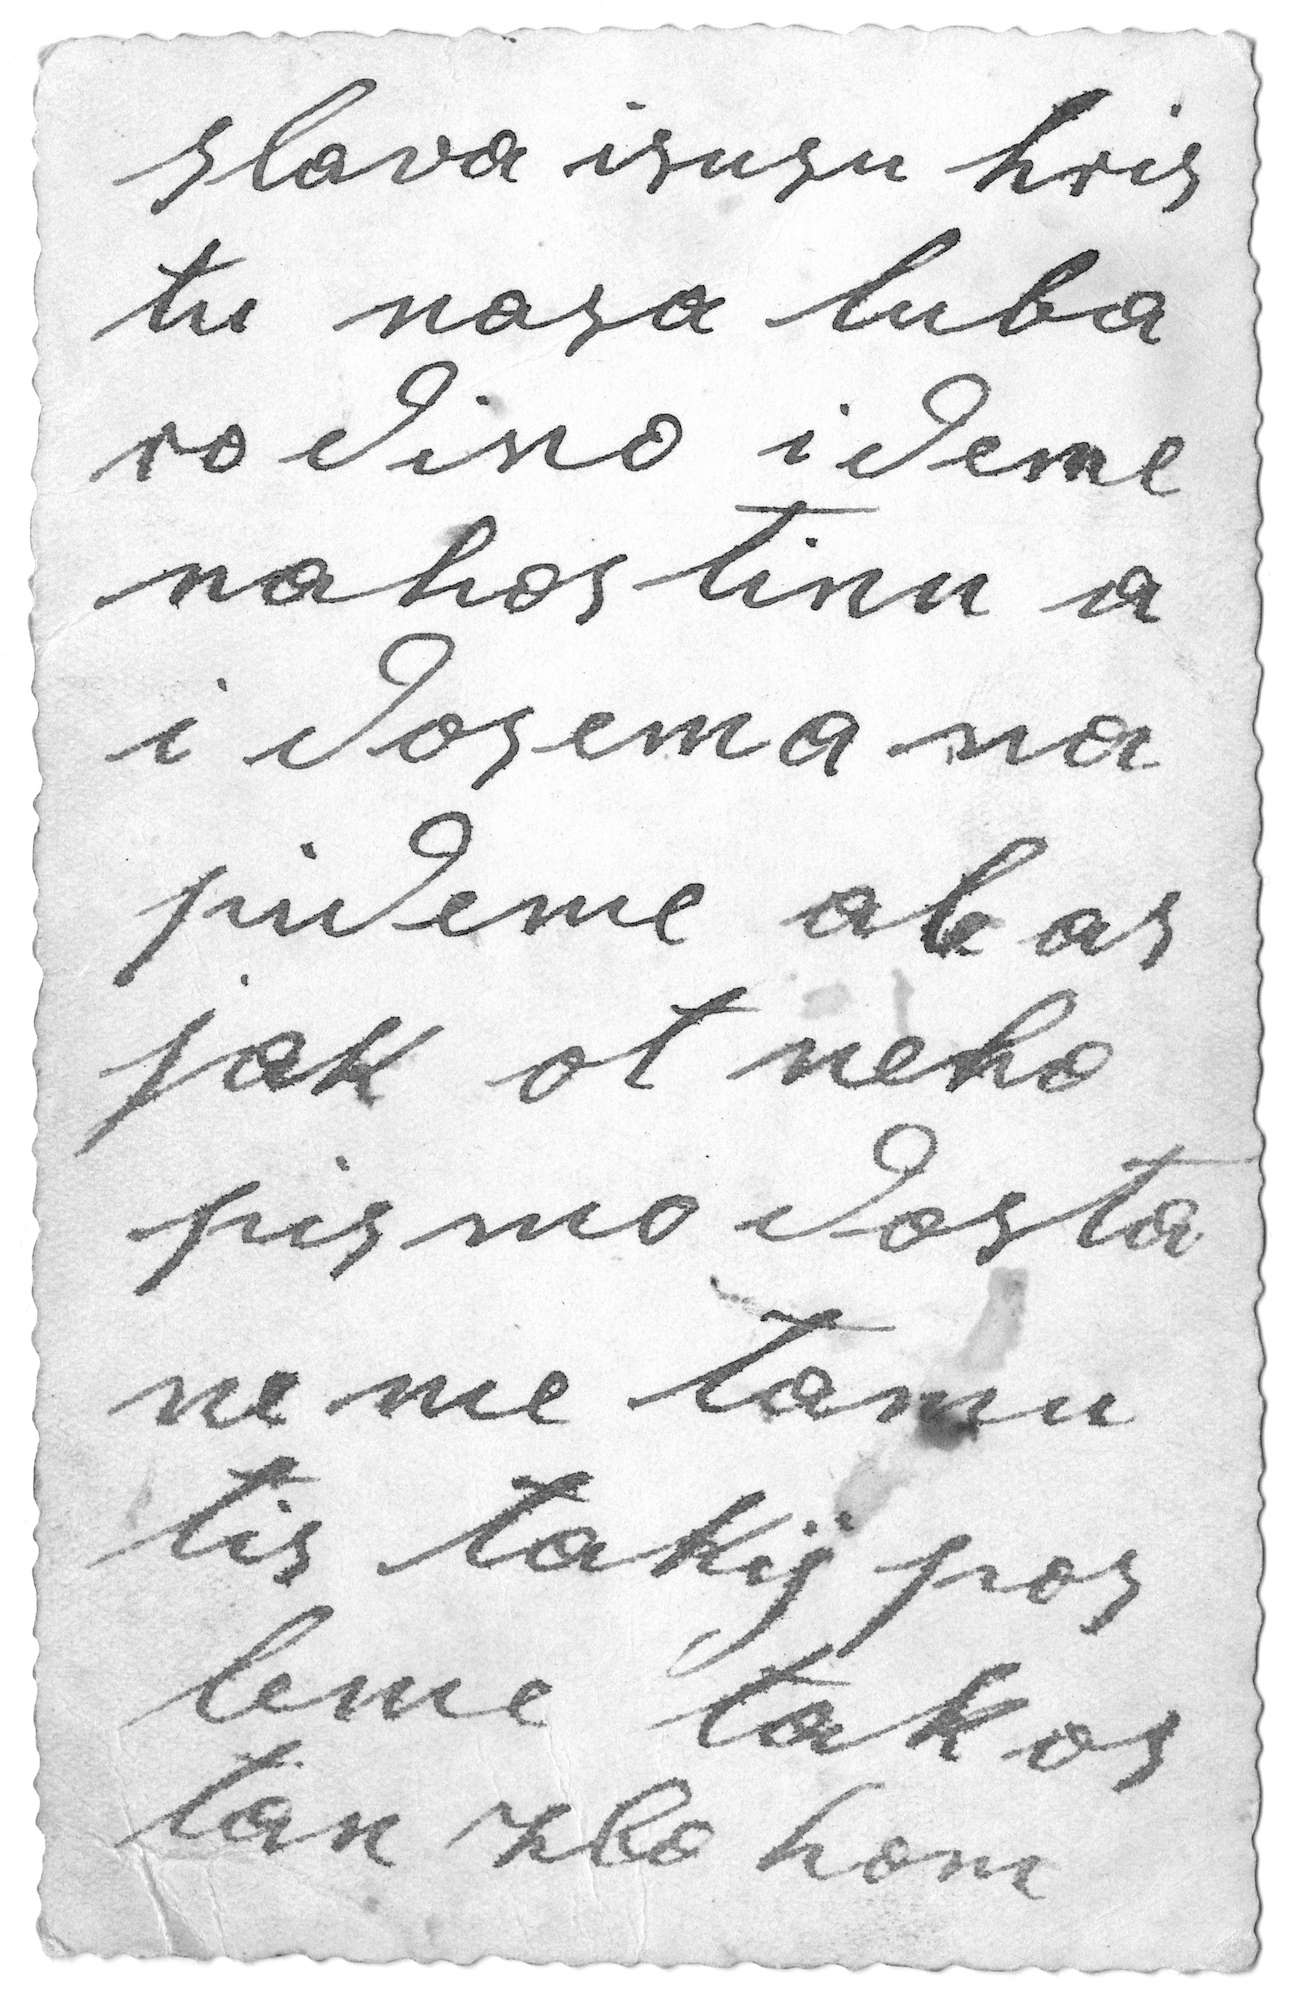 slava isusu hris
tu nasa luba
rodino ideme
nahostinu a
i dosema na
pideme abas
jak ot neho
pismo dosta
neme tamu
tis takij pos
leme takos
tan zbohom